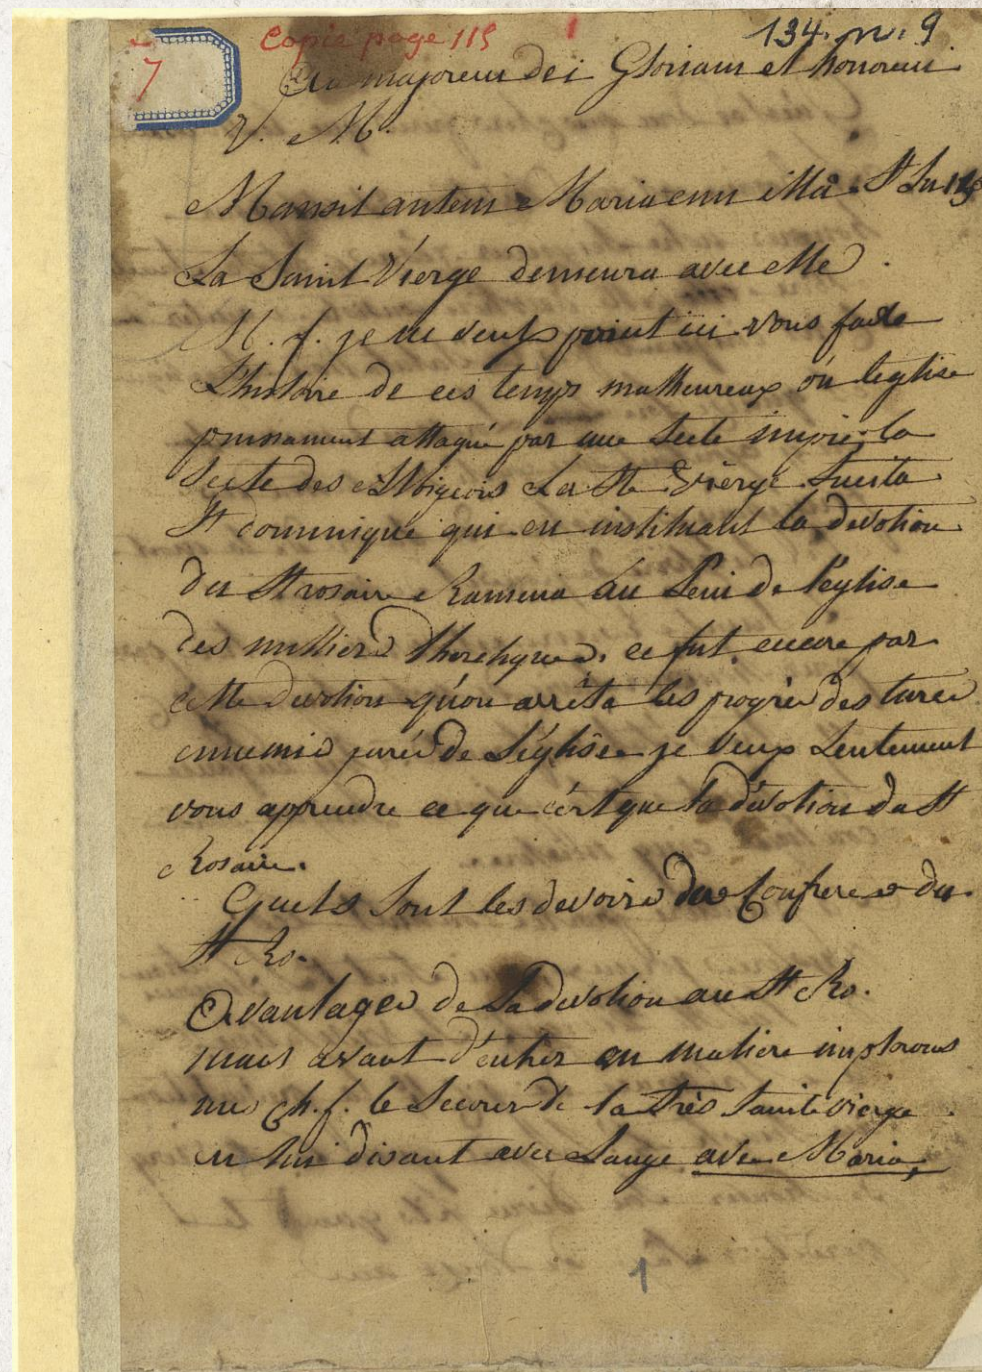 copie page 115 1 134. n. 9
7
Ad majorem dei Gloriam et honorem
V. M.
Mansit autem Maria cum illâ. St Lu 1
La Saint Vierge demeura avec elle.
M. f. je ne veux point ici vous faire
L'histoire de ces temps malheureux où leglise
puissament attaqué par une Secte impie: la
Secte des Albigeois La Ste Vierge Suscita
St dominique qui en instituant la devotion
du St rosaire Ramena au Sein de l'eglise
des millier d'heretiques. ce fut encore par
cette devotion qu'on arrêta les progrès des turcs
ennemis jurés de l'église je veux Seulement
vous apprendre ce que c'est que la dévotion du St
Rosaire.
Quels Sont les devoirs des Confreres du
St Ro.
Avantages de la devotion au St Ro.
mais avant d'entrer en matiere implorons
mes ch. f. le Secours de la très Sainte vierge
en lui disant avec Lange ave Maria,
1